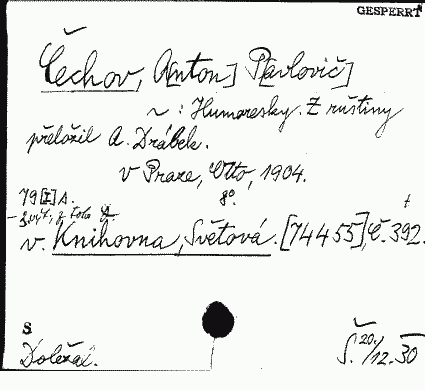 GESPERRT
Čechov, A[nton] P[avlovič]
~ : Humoresky. Z ruštiny
přeložil A. Drábek.
v Praze, Otto, 1904.
79 [I] s. 8°.
v. Knihovna, Světová. [74455], Č. 392.
S
Doležal. 20./12. 30